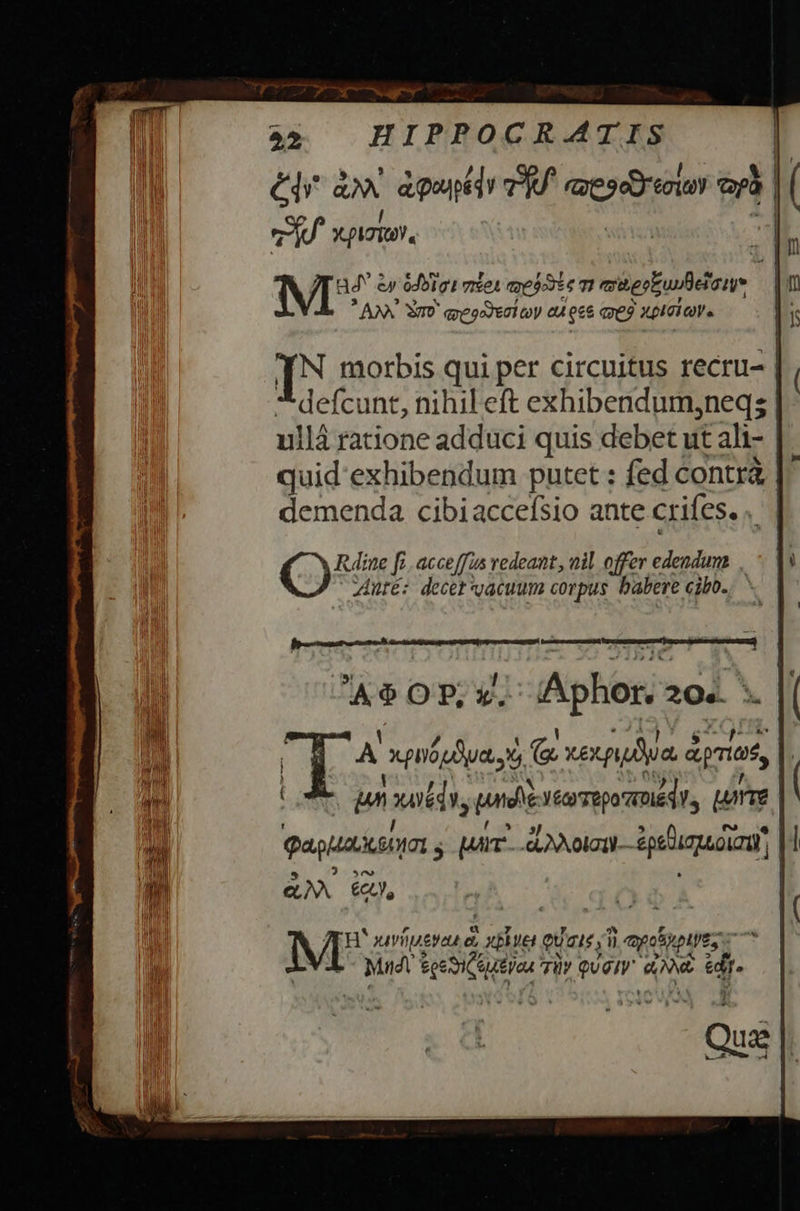 22 HIPPOCRATIS
ζειν ἀλλ' ἀφαιρέειν τῶν προσθεσίων πρὸ
τῶν κρισίων.
Μηδ' ἐν ὁδοῖσι
Ἀλλ' ὑπὸ προσθεσίων αἶρε πρὸ κρισίων.
IN morbis qui per circuitus recru-
deſcunt, nihil eſt exhibendum, neqꝫ
ullâ ratione adduci quis debet ut ali-
quid exhibendum putet : ſed contrà
demenda cibi acceſsio ante criſes.
ORdine ſi acceſſus redeant, nil offer edendum
Antè: decet vacuum corpus habere cibo.
ἈΦΟΡ. κ'. Aphor. 20.
ΤΑ κρινόμενα, καὶ τὰ κεκριμένα ἀρτίως,
μὴ κινέειν, μηδὲ νεωτεροποιέειν, μήτε
φαρμακείῃσι, μήτ' ἄλλοισιν ἐρεθισμοῖσιν,
ἀλλ' ἐᾶν.
ΜΗ κινήμεναι ἃ κρίνει φύσις, ἢ προέκρινε,
Μηδ' ἐρεθιζέμεναι τὴν φύσιν· ἀλλὰ
Quæ